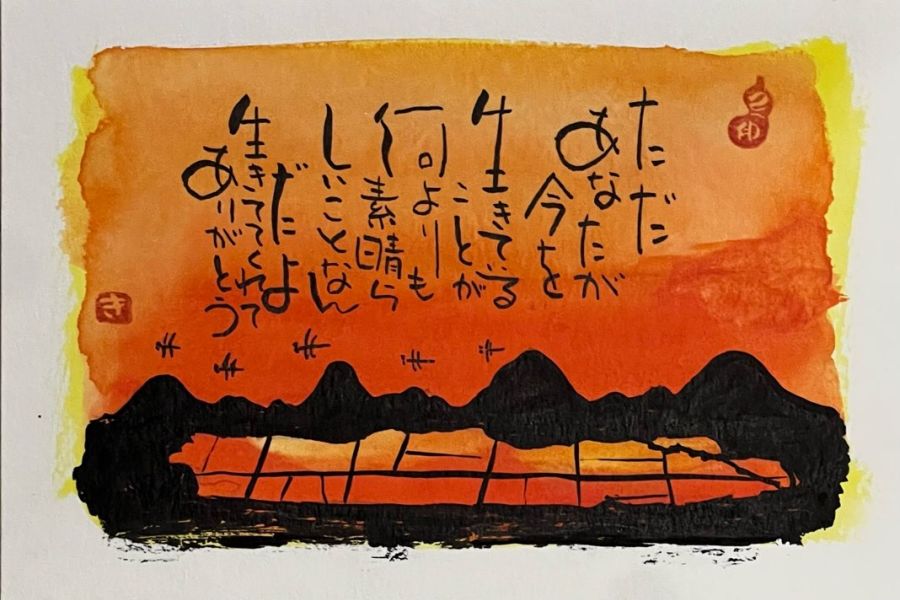 ただ
あなたが
今を
生きている
ことが
何よりも
素晴ら
しいことなん
だよ
生きててくれて
ありがとう
き